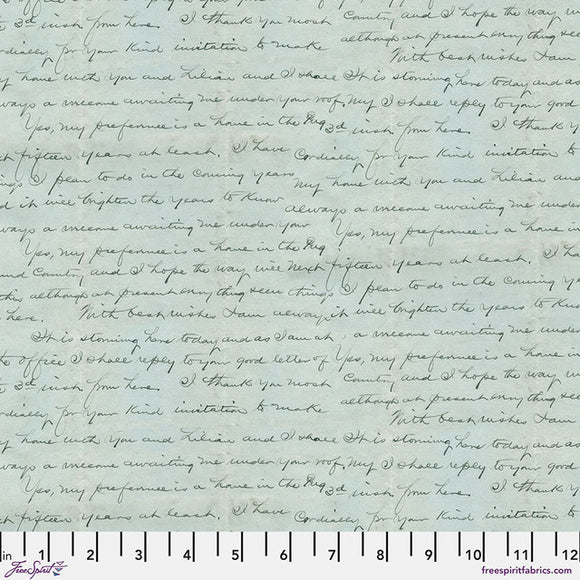 office I shall reply to your good letter of
3d inst from here. I thank you most
Country, and I hope the way will
cordially for your kind invitation to make
although at present everything seem
With best wishes I am
my home with you and Lilian and I shall
It is storming here today and as
always a welcome awaiting me under your roof.
My I shall reply to your good
Yes, my preference is a home in the
3d inst from here. I thank you
next fifteen years at least. I have
cordially for your kind invitation to
things I plan to do in the coming years
my home with you and Lilian and
and it will brighten the years to know
always a welcome awaiting me under
always a welcome awaiting me under your
Yes, my preference is a home in
Yes, my preference is a home in the
next fifteen years at least. I have
and Country, and I hope the way will
things I plan to do in the coming years
this although at present everything seem
it will brighten the years to know
here. With best wishes I am always,
It is storming here today and as I am at
a welcome awaiting me under
office I shall reply to your good letter of
Yes, my preference is a home in
3d inst from here. I thank you most
Country, and I hope the way will
cordially for your kind invitation to make
although at present everything seem
With best wishes I am
my home with you and Lilian and I shall
It is storming here today and as
always a welcome awaiting me under your roof.
My I shall reply to your good
Yes, my preference is a home in the
3d inst from here. I thank you
next fifteen years at least. I have
cordially for your kind invitation to
in 1 2 3 4 5 6 7 8 9 10 11 12
FreeSpirit
freespiritfabrics.com